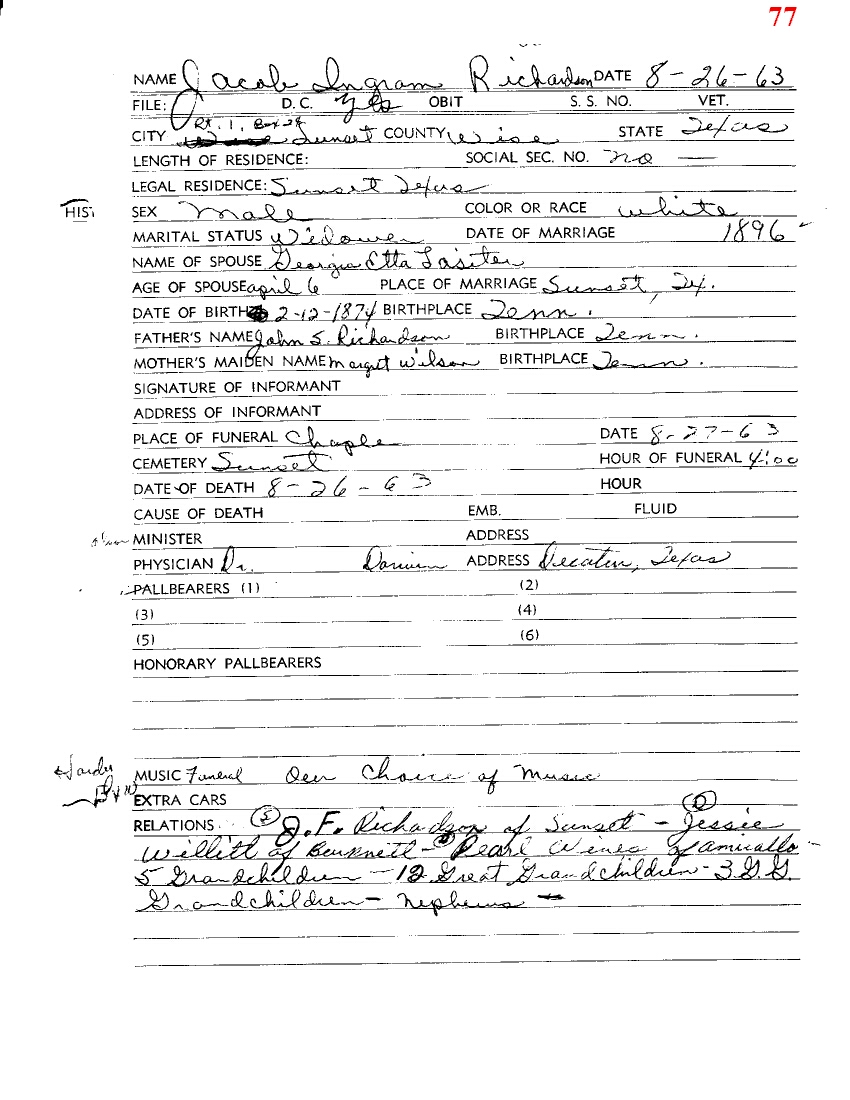 77
NAME Jacob Ingram Richardson DATE 8-26-63
FILE: D. C. Yes OBIT S. S. NO. VET.
Rt. 1, Box 24
CITY Sunset COUNTY Wise STATE Texas
LENGTH OF RESIDENCE: SOCIAL SEC. NO. no —
LEGAL RESIDENCE: Sunset Texas
HIS
SEX Male COLOR OR RACE White
MARITAL STATUS Widower DATE OF MARRIAGE 1896
NAME OF SPOUSE Georgia Etta Lasiter
AGE OF SPOUSE april 6 PLACE OF MARRIAGE Sunset, Tx.
DATE OF BIRTH 2-12-1874 BIRTHPLACE Tenn.
FATHER'S NAME John S. Richardson BIRTHPLACE Tenn.
MOTHER'S MAIDEN NAME Margret Wilson BIRTHPLACE Tenn.
SIGNATURE OF INFORMANT
ADDRESS OF INFORMANT
PLACE OF FUNERAL Chaple DATE 8-27-63
CEMETERY Sunset HOUR OF FUNERAL 4:00
DATE OF DEATH 8-26-63 HOUR
CAUSE OF DEATH EMB. FLUID
MINISTER ADDRESS
PHYSICIAN Dr. ADDRESS Decatur, Texas
PALLBEARERS (1) (2)
(3) (4)
(5) (6)
HONORARY PALLBEARERS
MUSIC Funeral Our Choice of Music
EXTRA CARS
RELATIONS J. F. Richardson of Sunset - Jessie
Willitt of Burknett - Pearl Wines of amirallo -
5 Grandchildren - 12 Great Grandchildren - 3 G.G.
Grandchildren - Nephews -